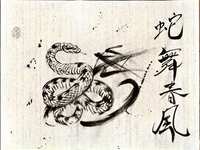 蛇舞春風